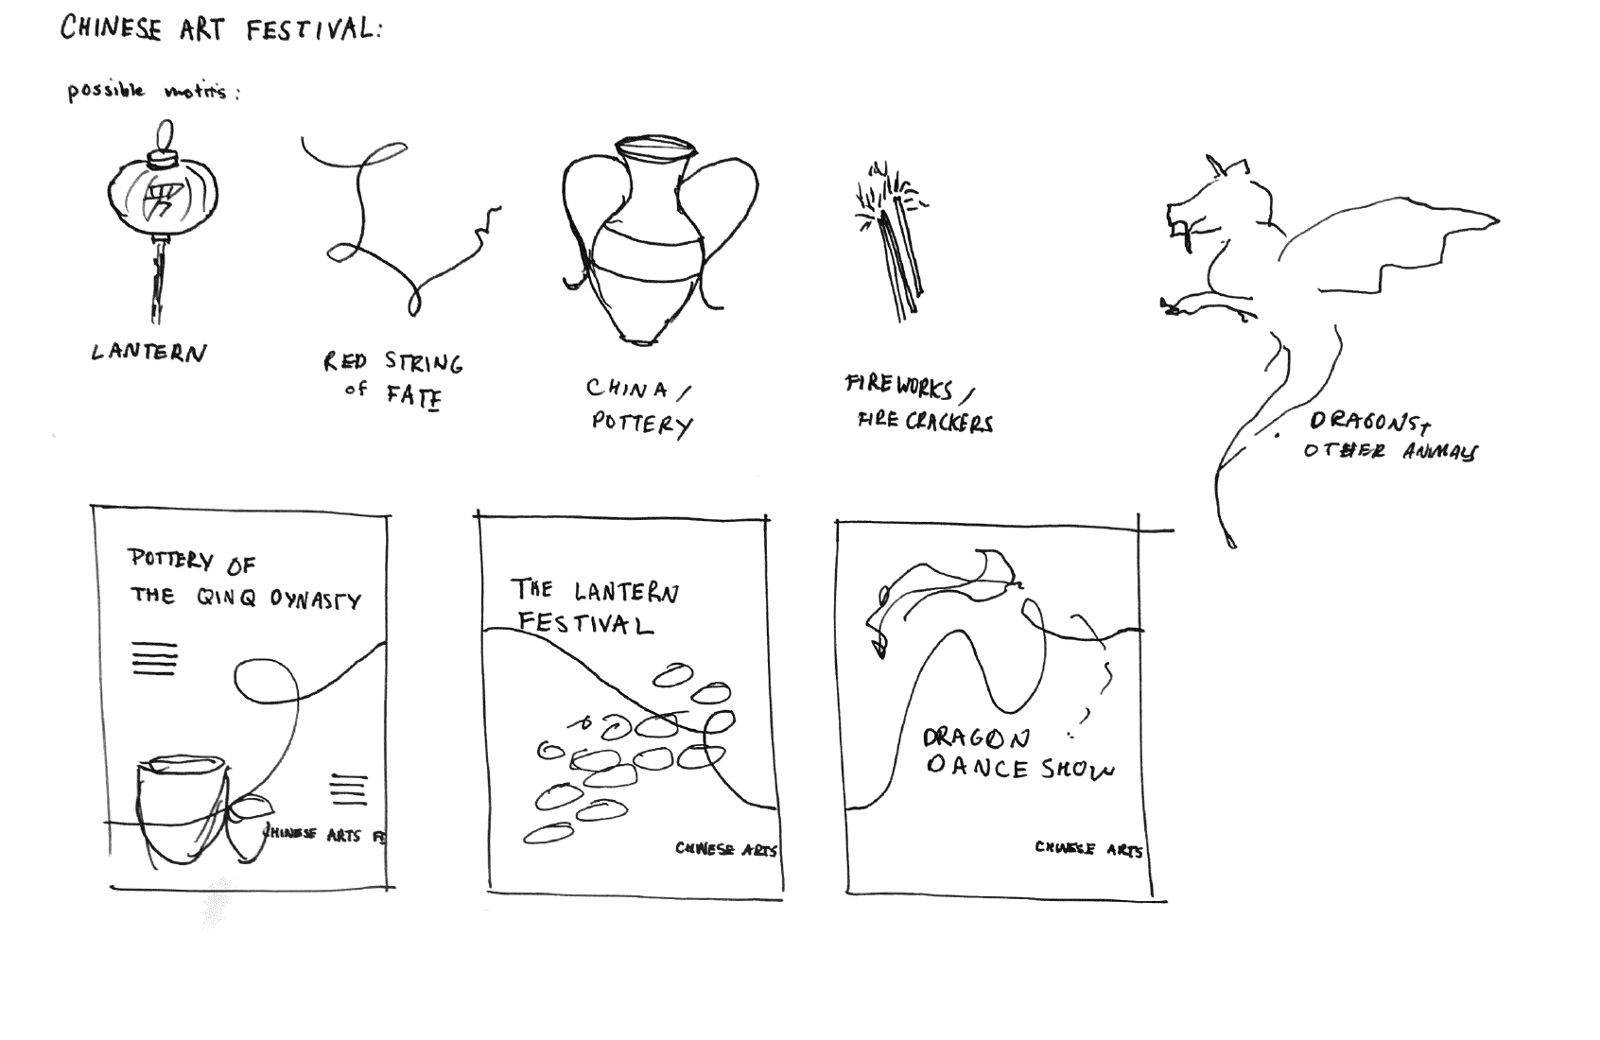 CHINESE ART FESTIVAL:
possible motifs:
LANTERN
RED STRING
of FATE
CHINA/
POTTERY
FIREWORKS/
FIRE CRACKERS
DRAGONS+
OTHER ANIMALS
POTTERY OF
THE QING DYNASTY
CHINESE ARTS FE
THE LANTERN
FESTIVAL
CHINESE ARTS
DRAGON
DANCE SHOW
CHINESE ARTS